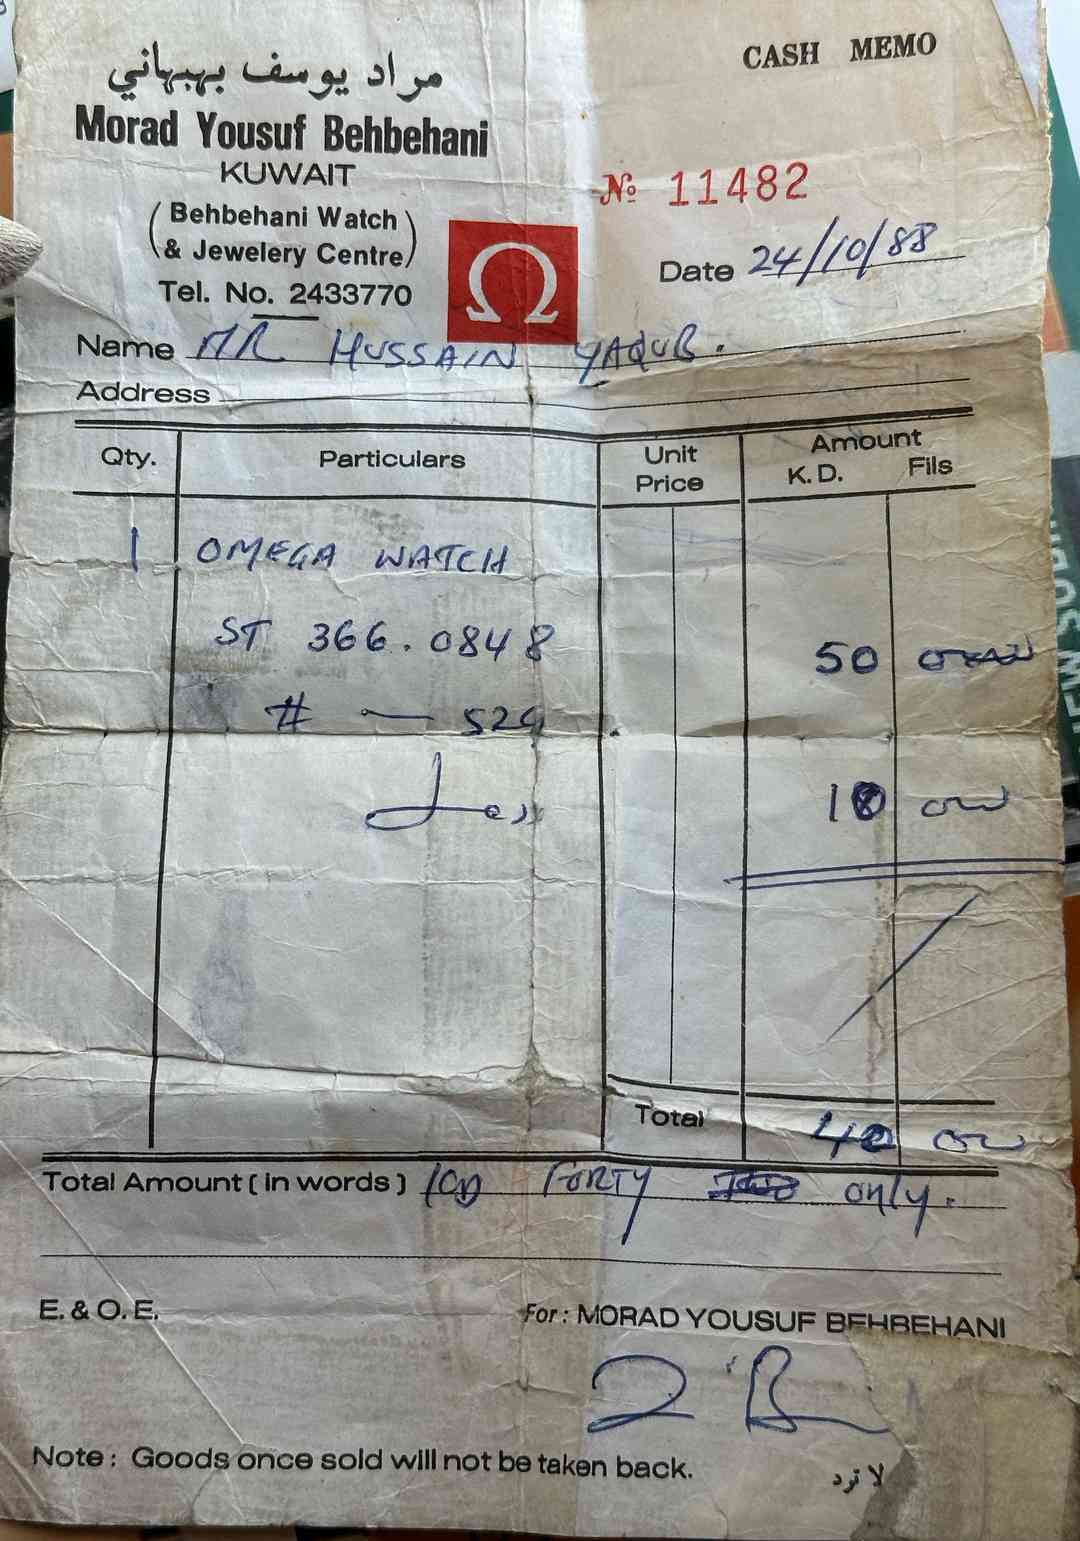 CASH MEMO
مراد يوسف بهبهاني
Morad Yousuf Behbehani
KUWAIT
(Behbehani Watch
& Jewelery Centre)
Tel. No. 2433770
Ω
№ 11482
Date 24/10/88
Name MR HUSSAIN YAQUB.
Address
Qty. Particulars Unit Price Amount K.D. Fils
1 OMEGA WATCH
ST 366.0848 50
# — 524
Less 10
Total 40
Total Amount (in words) KD FORTY only.
E. & O. E.
For: MORAD YOUSUF BEHBEHANI
Note: Goods once sold will not be taken back.
لا ترد